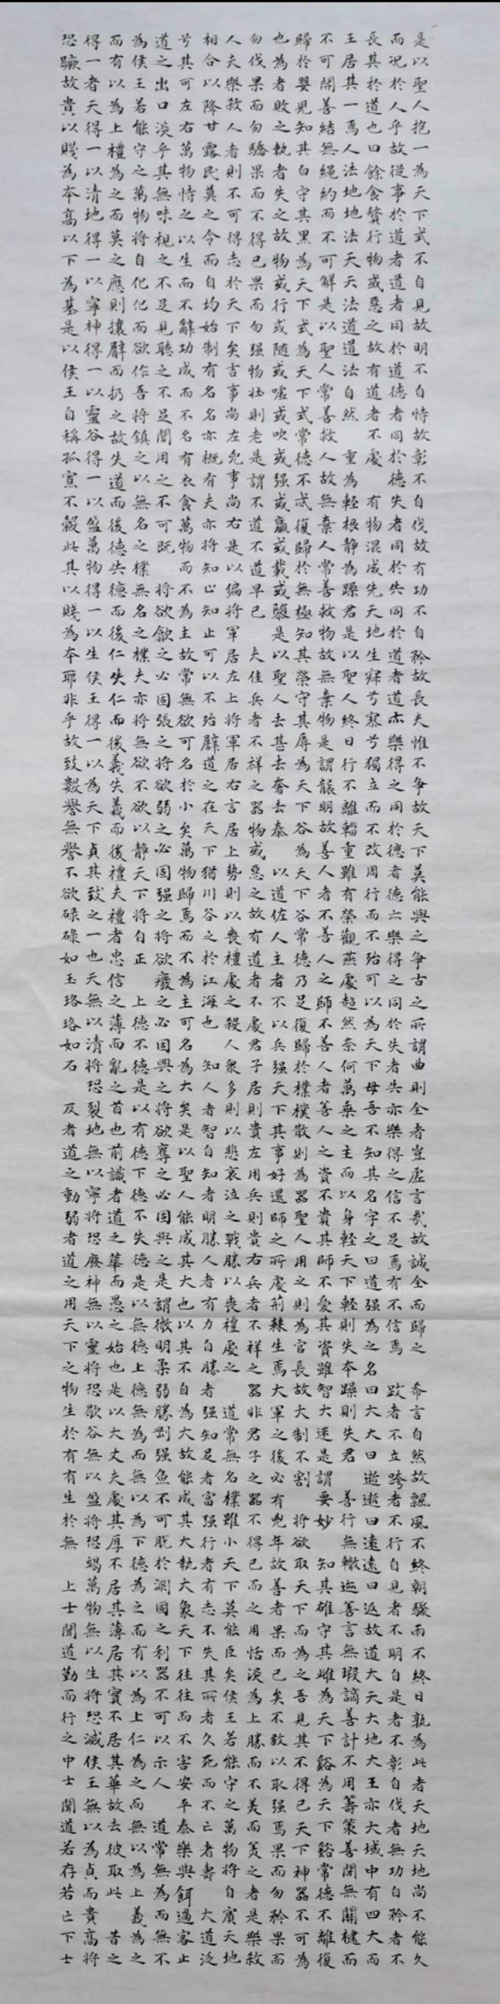 是以聖人抱一為天下式不自見故明不自恃故彰不自伐故有功不自矜故長夫惟不爭故天下莫能與之爭古之所謂曲則全者豈虛言哉故誠全而歸之 希言自然故飄風不終朝驟雨不終日孰為此者天地天地尚不能久
而況於人乎故從事於道者道者同於道德者同於德失者同於失同於道者道亦樂得之同於德者德亦樂得之同於失者失亦樂得之信不足焉有不信焉 跂者不立跨者不行自見者不明自是者不彰自伐者無功自矜者不
長其於道也曰餘食贅行物或惡之故有道者不處 有物混成先天地生寂兮寥兮獨立而不改周行而不殆可以為天下母吾不知其名字之曰道强為之名曰大大曰逝逝曰遠遠曰返故道大天大地大王亦大域中有四大而
王居其一焉人法地地法天天法道道法自然 重為輕根静為躁君是以聖人終日行不離輜重雖有榮觀燕處超然奈何萬乘之主而以身輕天下輕則失本躁則失君 善行無轍迹善言無瑕謫善計不用籌策善閉無關楗而
不可開善結無繩約而不可解是以聖人常善救人故無棄人常善救物故無棄物是謂襲明故善人者不善人之師不善人者善人之資不貴其師不愛其資雖智大迷是謂要妙 知其雄守其雌為天下谿為天下谿常德不離復
歸於嬰兒知其白守其黑為天下式為天下式常德不忒復歸於無極知其榮守其辱為天下谷為天下谷常德乃足復歸於樸樸散則為器聖人用之則為官長故大制不割 將欲取天下而為之吾見其不得已天下神器不可為
也為者敗之執者失之故物或行或隨或噓或吹或强或羸或載或隳是以聖人去甚去奢去泰 以道佐人主者不以兵强天下其事好還師之所處荊棘生焉大軍之後必有凶年故善者果而已矣不敢以取强焉果而勿矜果而
勿伐果而勿驕果而不得已果而勿强物壯則老是謂不道不道早已 夫佳兵者不祥之器物或惡之故有道者不處君子居則貴左用兵則貴右兵者不祥之器非君子之器不得已而之用恬淡為上勝而不美而美之者是樂殺
人夫樂殺人者則不可得志於天下矣言事尚左凶事尚右是以偏將軍居左上將軍居右言居上勢則以喪禮處之殺人衆多則以悲哀泣之戰勝以喪禮處之 道常無名樸雖小天下莫能臣矣侯王若能守之萬物將自賓天地
相合以降甘露民莫之令而自均始制有名名亦概有夫亦將知止知止可以不殆辟道之在天下猶川谷之於江海也 知人者智自知者明勝人者有力自勝者强知足者富强行者有志不失其所者久死而不亡者壽 大道泛
兮其可左右萬物恃之以生而不辭功成而不名有衣食萬物而不為主故常無欲可名於小矣萬物歸焉而不為主可名為大矣是以聖人能成其大也以其不自為大故能成其大執大象天下往往而不害安平泰樂與餌過客止
道之出口淡乎其無味視之不足見聽之不足聞用之不可既 將欲歙之必固張之將欲弱之必固强之將欲廢之必固興之將欲奪之必固與之是謂微明柔弱勝剛强魚不可脫於淵國之利器不可以示人 道常無為而無不
為侯王若能守之萬物將自化化而欲作吾將鎮之以無名之樸無名之樸夫亦將無欲不欲以静天下將自正 上德不德是以有德下德不失德是以無德上德無為而無以為下德為之而有以為上仁為之而無以為上義為之
而有以為上禮為之而莫之應則攘臂而扔之故失道而後德失德而後仁失仁而後義失義而後禮夫禮者忠信之薄而亂之首也前識者道之華而愚之始也是以大丈夫處其厚不居其薄居其實不居其華故去彼取此 昔之
得一者天得一以清地得一以寧神得一以靈谷得一以盈萬物得一以生侯王得一以為天下貞其致之一也天無以清將恐裂地無以寧將恐廢神無以靈將恐歇谷無以盈將恐竭萬物無以生將恐滅侯王無以為貞而貴高將
恐蹶故貴以賤為本高以下為基是以侯王自稱孤寡不穀此其以賤為本耶非乎故致數譽無譽不欲碌碌如玉珞珞如石 反者道之動弱者道之用天下之物生於有有生於無 上士聞道勤而行之中士聞道若存若亡下士